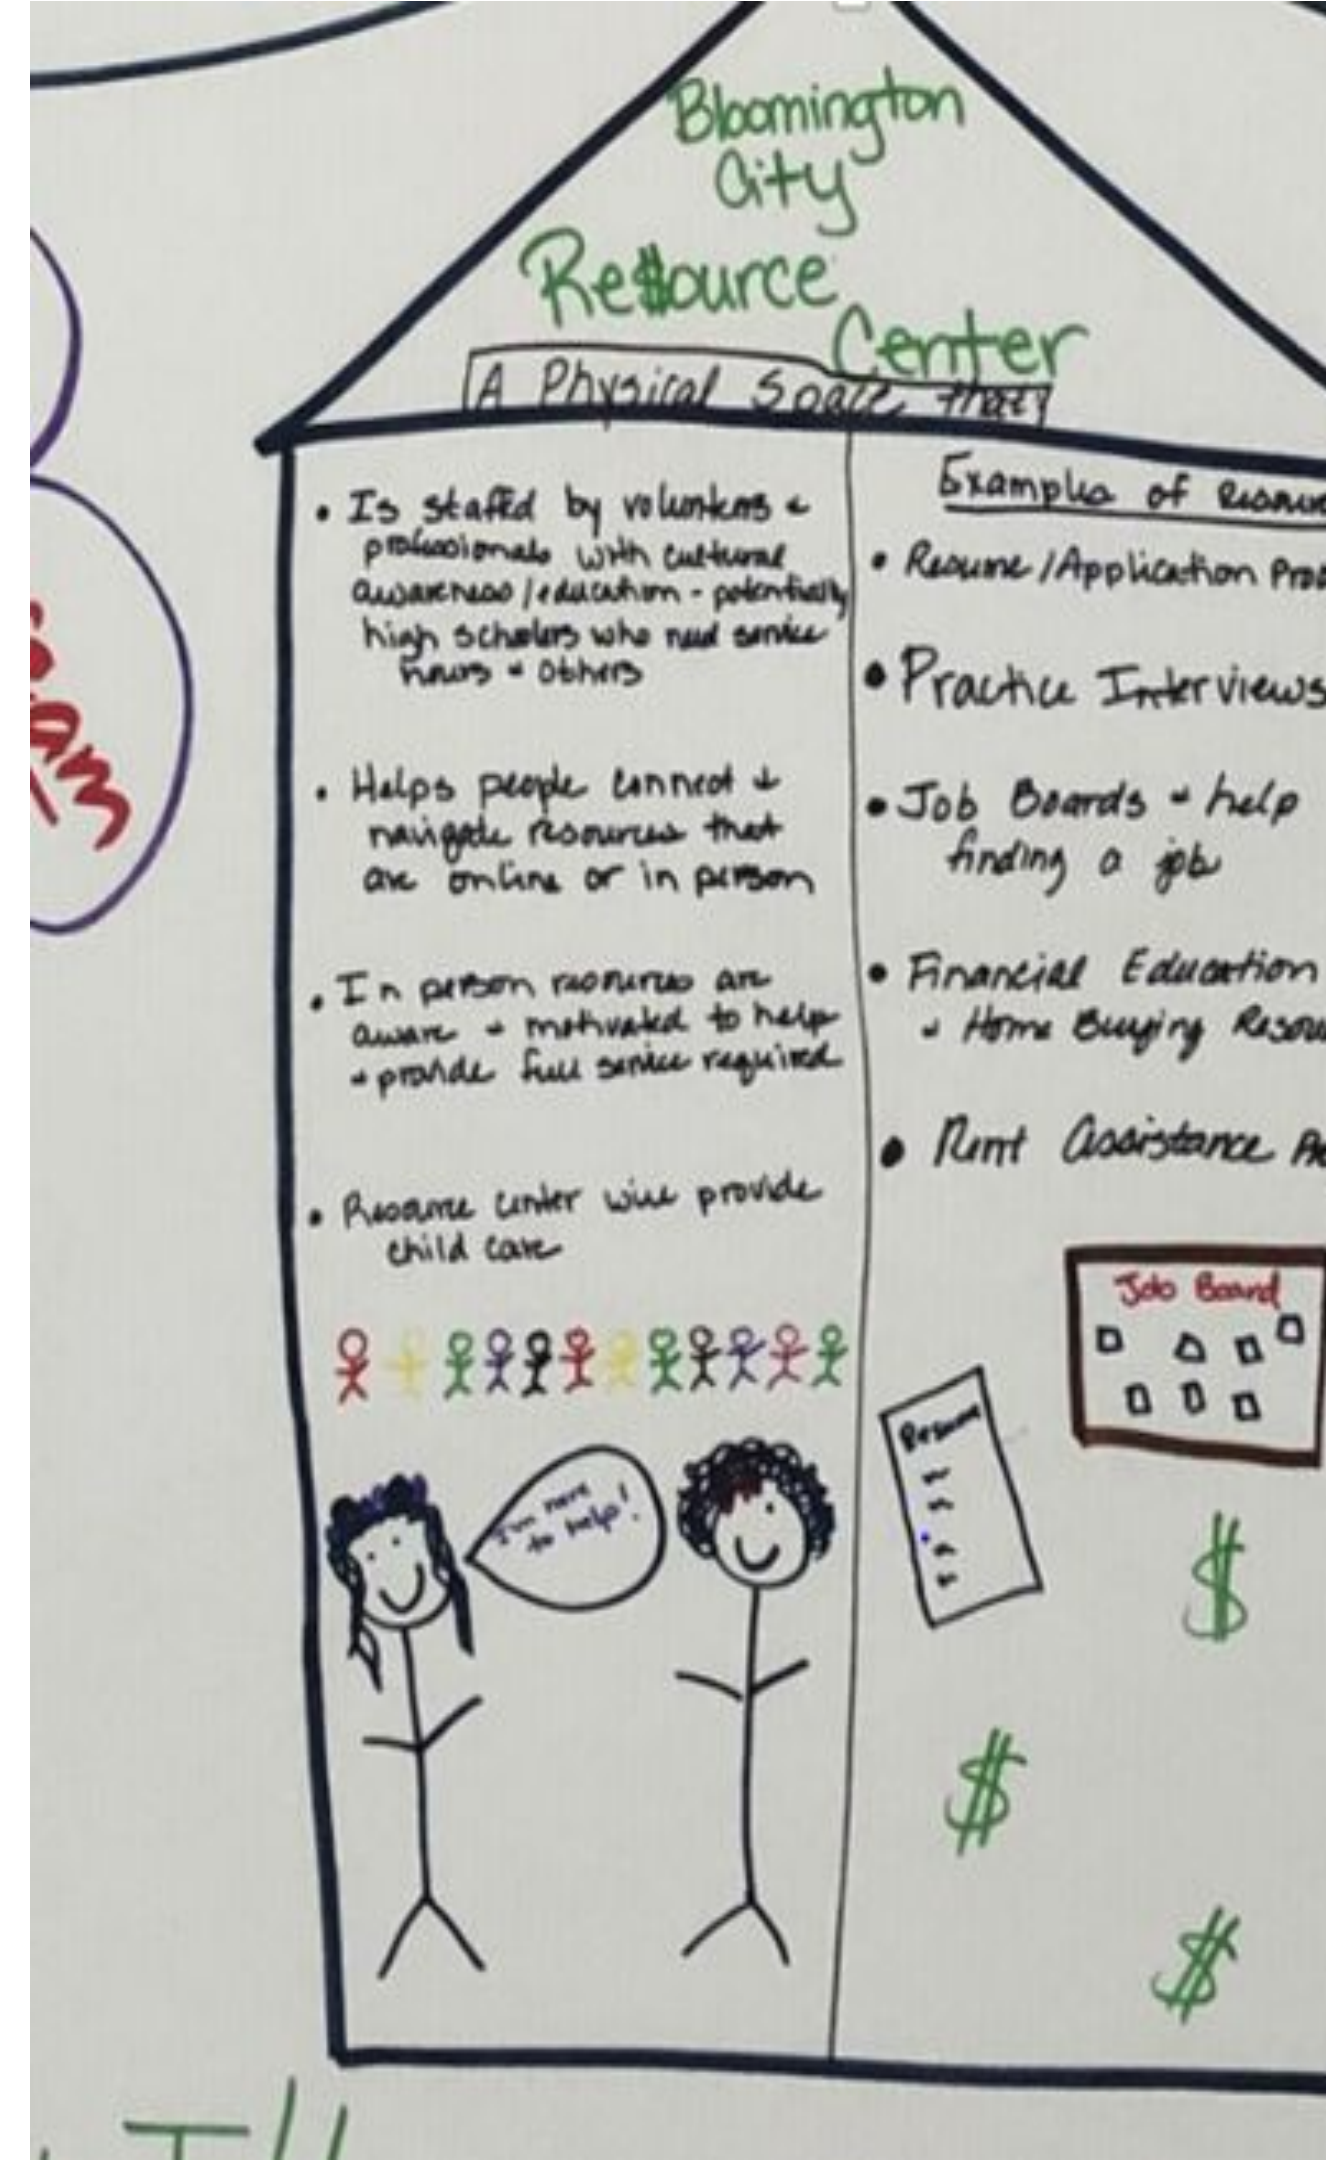 Bloomington
City
Re$ource
Center
A Physical Space that
• Is staffed by volunteers &
professionals with cultural
awareness/education - potentially
high scholers who need service
hours & others
• Helps people connect &
navigate resources that
are online or in person
• In person resources are
aware & motivated to help
& provide full service required
• Resource center will provide
child care
I'm here
to help!
Examples of
• Resume/Application
• Practice Interviews
• Job Boards & help
finding a job
• Financial Education
& Home Buying
• Rent Assistance
Job Board
Resume
$
$
$